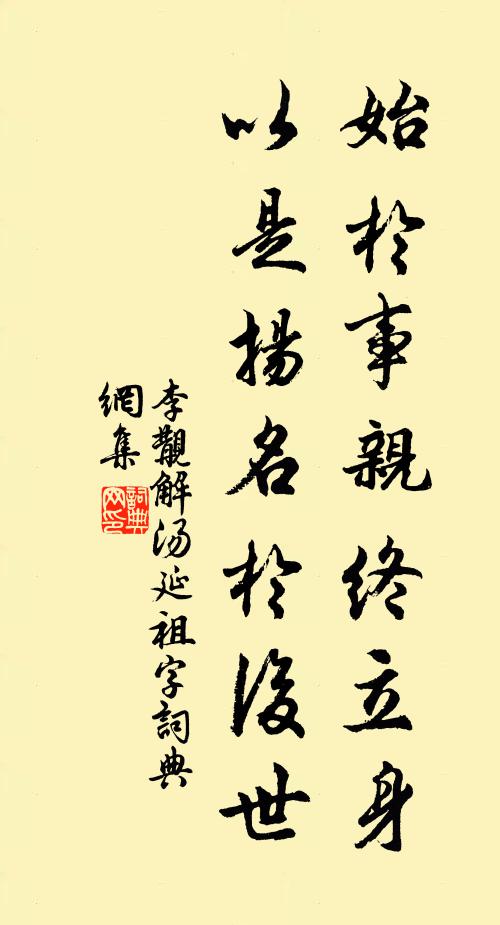 始於事親終立身
以是揚名於後世
李觀解湯延祖字詞典
網集
詞典
网印